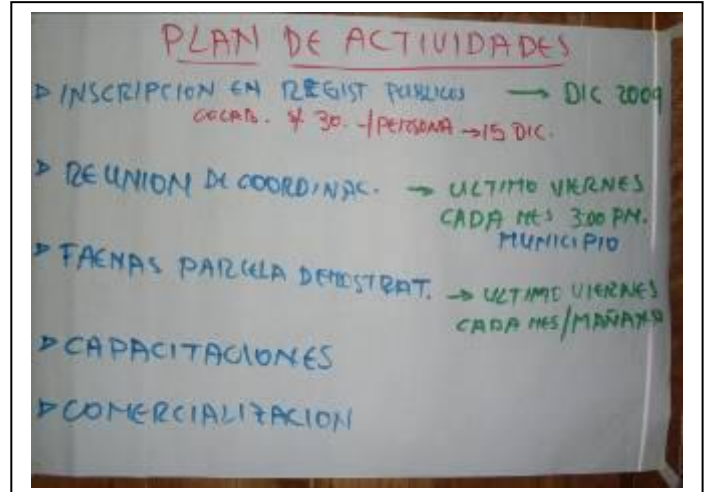 PLAN DE ACTIVIDADES
▷ INSCRIPCION EN REGIST PUBLICOS → DIC 2009
S/ 30.-/PERSONA → 15 DIC.
▷ REUNION DE COORDINAC. → ULTIMO VIERNES
CADA MES 3:00 PM.
MUNICIPIO
▷ FAENAS PARCELA DEMOSTRAT. → ULTIMO VIERNES
CADA MES/MAÑANA
▷ CAPACITACIONES
▷ COMERCIALIZACION